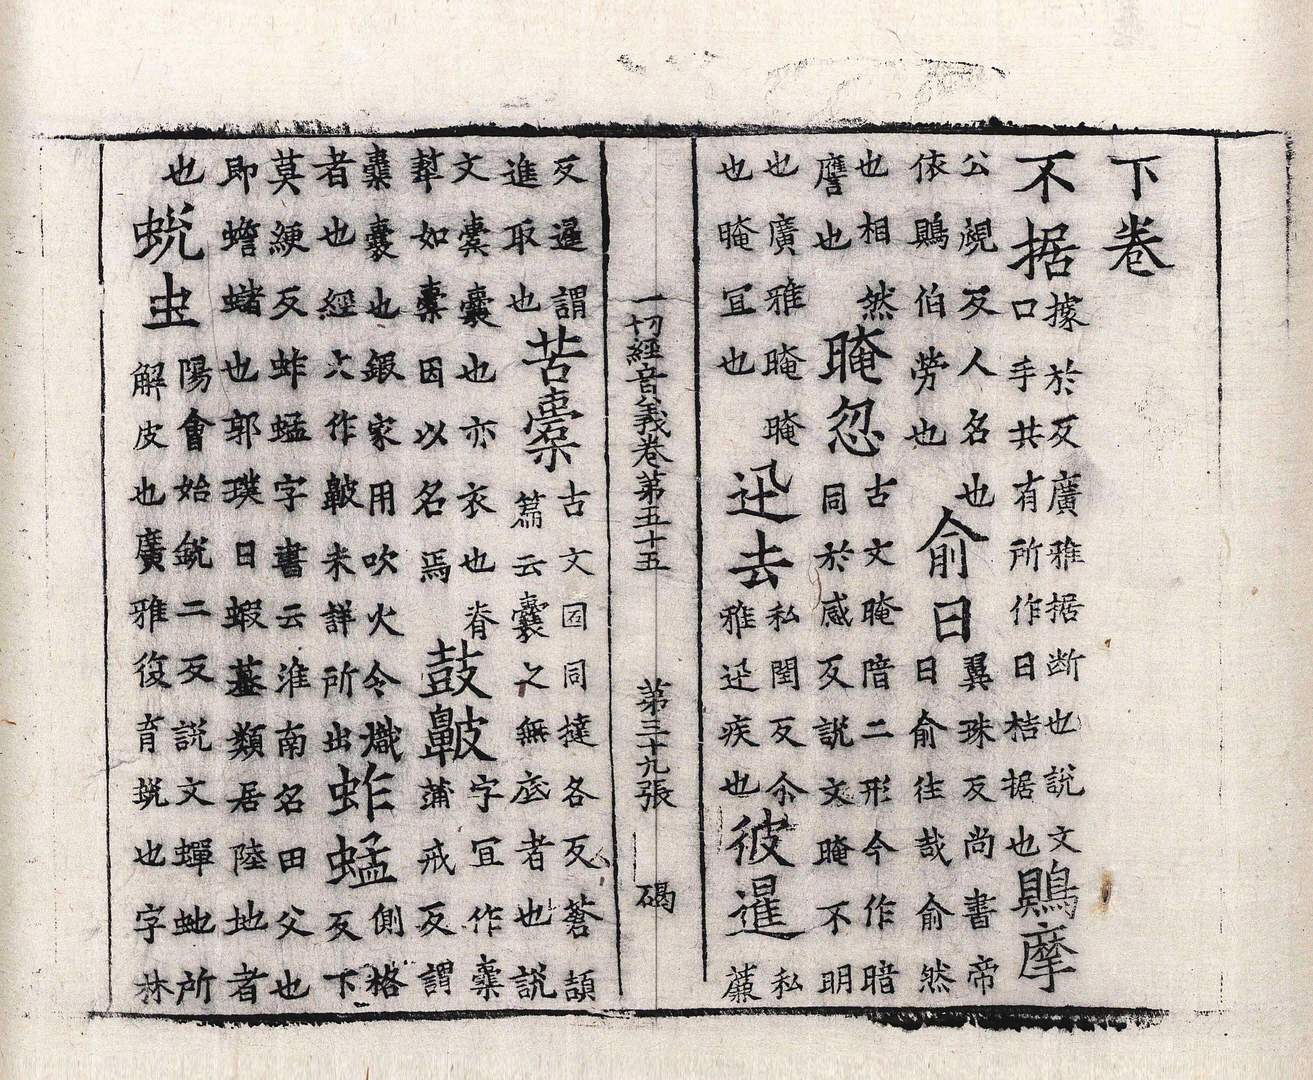 下卷
不据
據於反廣雅据断也說文
口手共有所作曰桔据也
鵙摩
公覞反人名也
依鵙伯劳也
俞曰
翼珠反尚書帝
曰俞往哉俞然
也相然
譍也
晻忽
古文晻暗二形今作暗
同於感反說文晻不明
也廣雅晻晻
也晻冝也
迅去
私閏反尒
雅迅疾也
彼暹
私
薕
一切經音義卷第五十五　第三十九張　碣
反暹謂
進取也
苦橐
古文囙同撻各反蒼頡
篇云囊之無底者也說
文橐囊也亦衣也脊
鞤如橐因以名焉
鼓鞁
字冝作橐
蒲戒反謂
橐囊也鍜家用吹火令熾
者也經文作鞁未詳所出
蚱蜢
側格
反下
莫綆反蚱蜢字書云淮南名田父也
即蟾蠩也郭璞曰蝦蟇類居陸地者
也
蛻虫
陽會始銳二反說文蟬虵所
解皮也廣雅復育蛻也字林